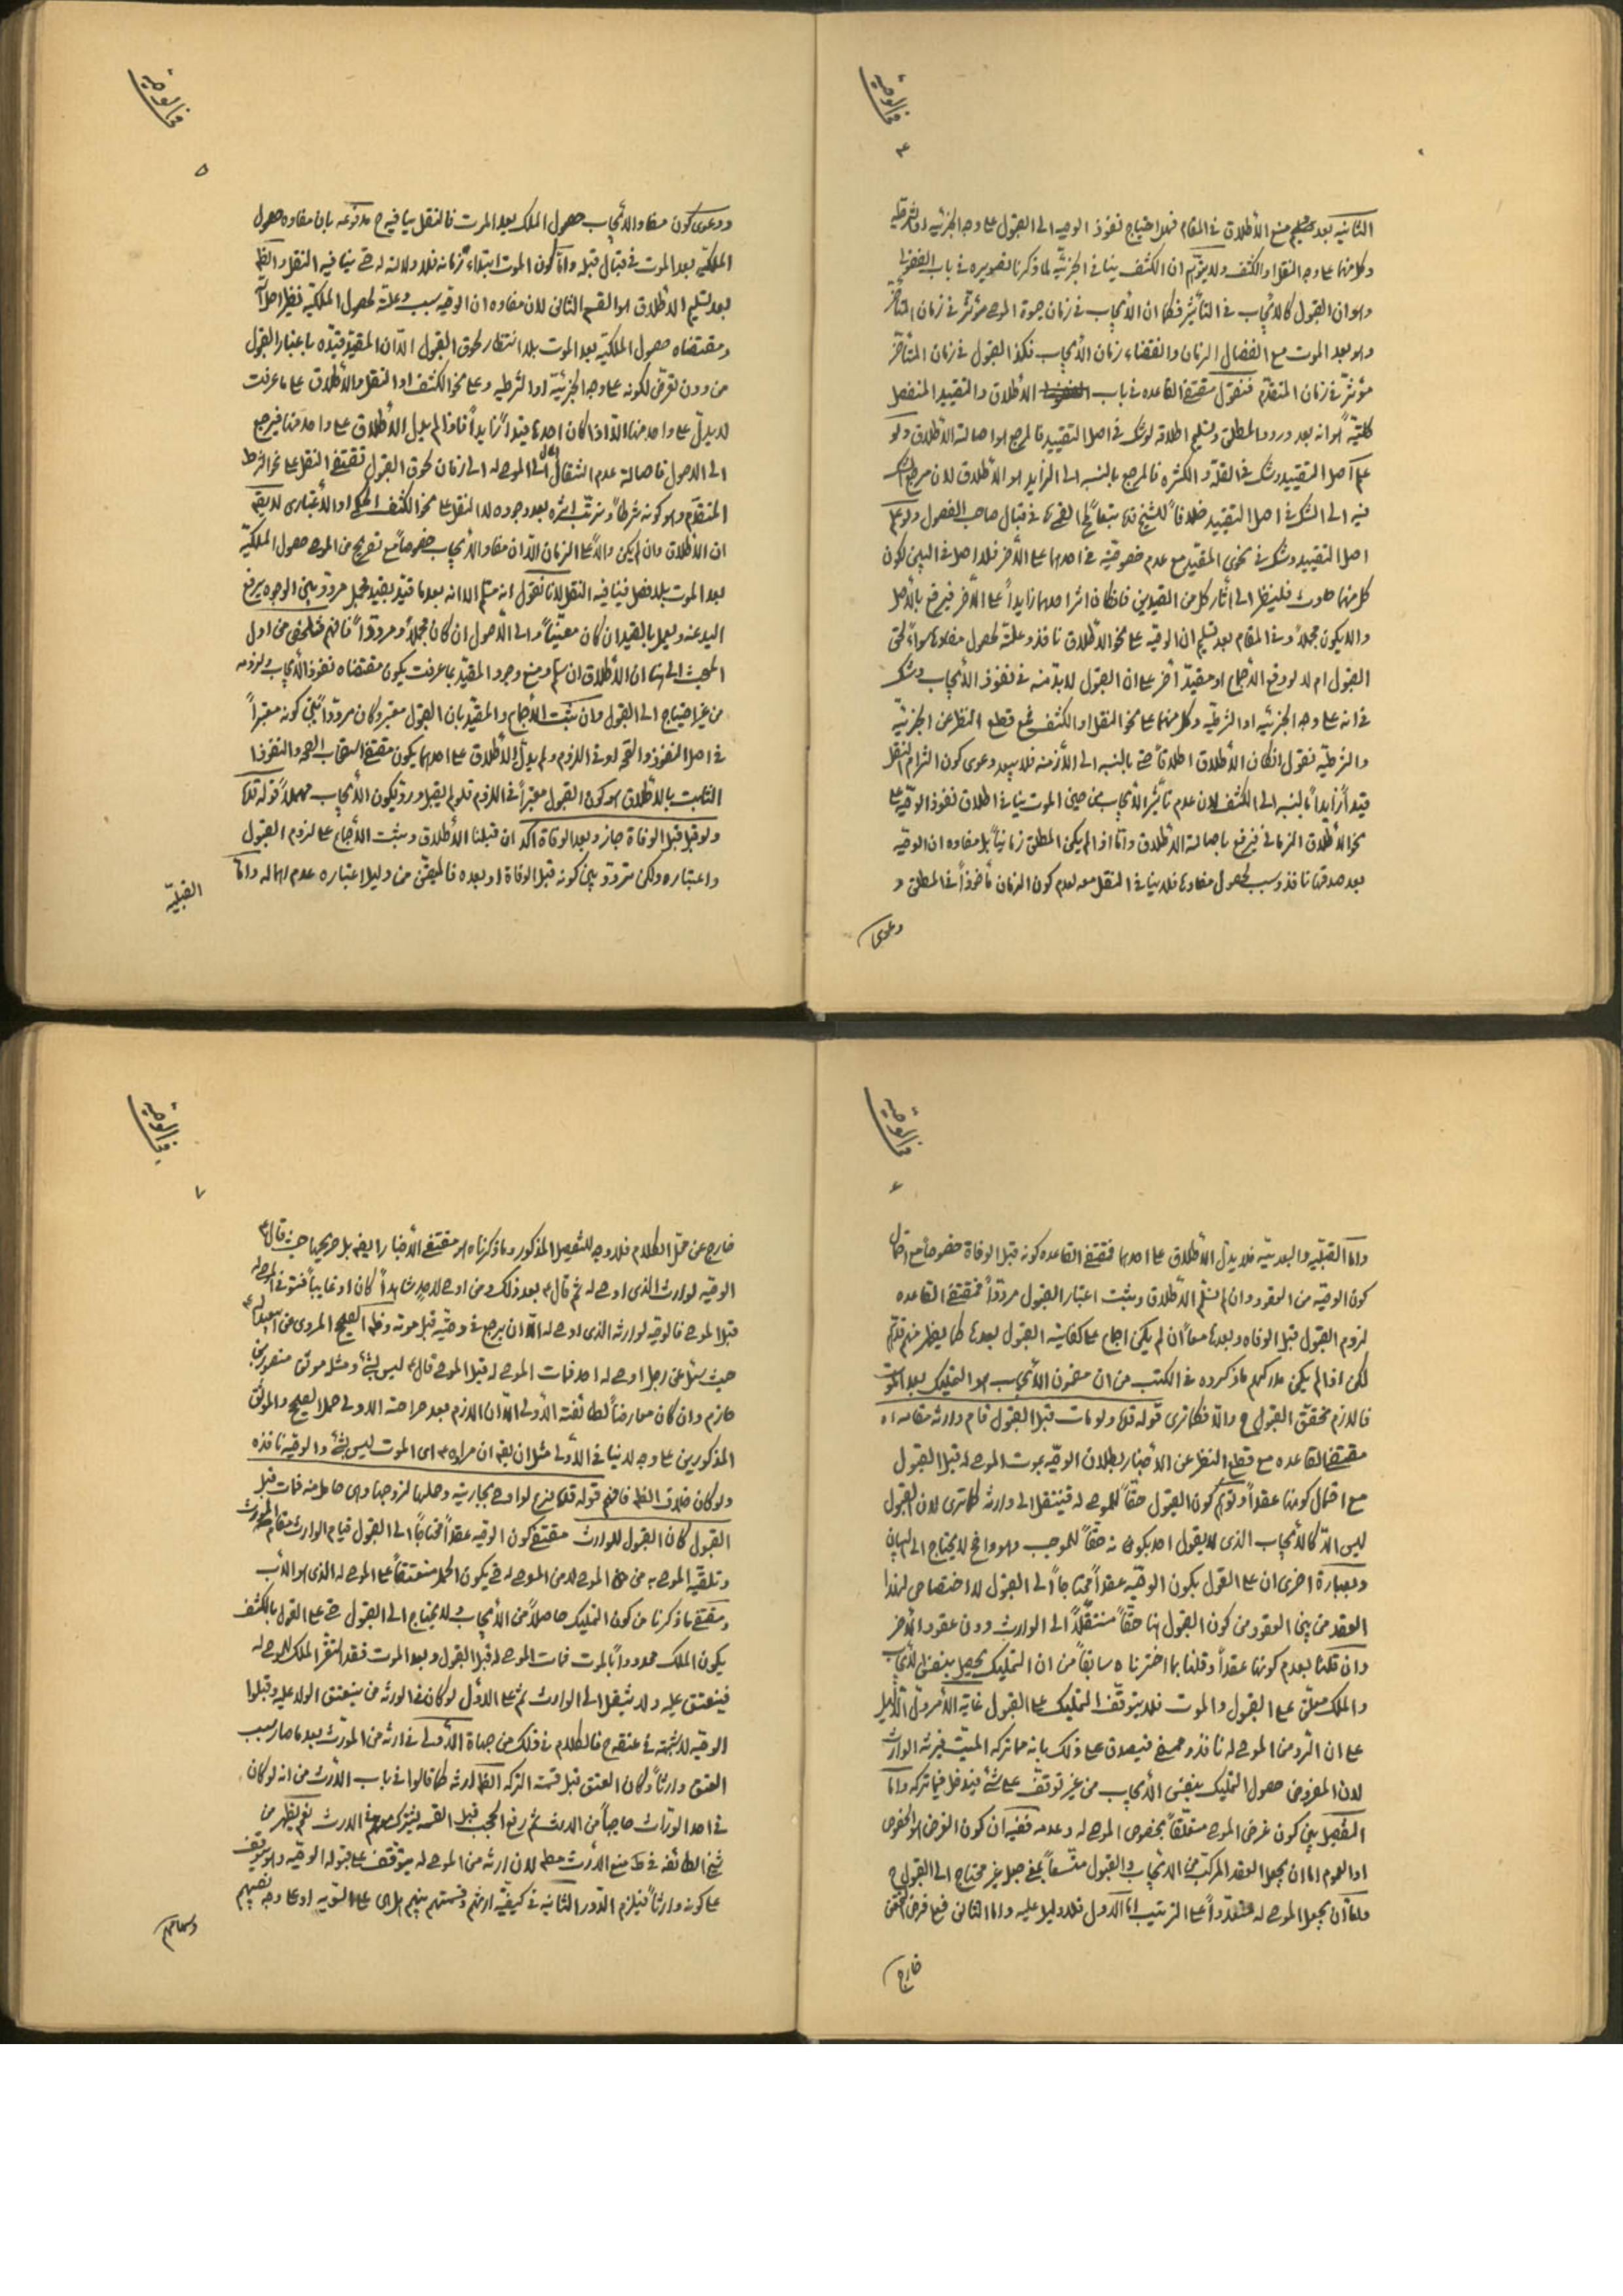 في الوصية
۴
الثانية بعد منع الأطلاق في المقام فلا احتياج نفوذ الوصيه الى القبول على وجه الجزئيه او الشرطيه
وكل منهما على وجه النقل او الكشف ولا يتوهم ان الكشف ينافي الجزئيّة لما ذكرنا تصويره في باب الفضولى
وهو ان القبول كالأيجاب في التأثير فكما ان الأيجاب في زمان حيوة الموصى مؤثّر في زمان المتأخّر
وهو بعد الموت مع انفصال الزمان وانقضاء زمان الأيجاب فكذا القبول في زمان المتأخّر
مؤثرّ في زمان المتقدّم فنقول مقتضى القاعده في باب الأطلاق والتقييد المنفصل
كليّةً هو انه بعد ورود المطلق وتسليم اطلاقه لو شكّ في اصل التقييد فالمرجع هو اصالة الأطلاق ولو
علم اصل التقييد وشك في القلّة والكثره فالمرجع بالنسبه الى الزايد هو الأطلاق لان مرجع الشكّ
فيه الى الشكّ في اصل التقييد خلافاً للشيخ قده تبعاً في قبال صاحب الفصول ولو علم
اصل التقييد وشك في نحوى المقيّد مع عدم خصوصيّة في احدهما على الأخر فلا اصل في البين لكون
كل منهما حادث فلينظر الى أثار كل من القيدين فاذا كان اثر احدهما زايداً على الأخر فيرفع بالأصل
والا يكون مجملاً وفي المقام بعد تسليم ان الوصيّه على نحو الأطلاق نافذ وعلّة لحصول مفادها سواء لحق
القبول ام لا لو وقع الأجماع او مقيّد أخر على ان القبول لا بدّ منه في نفوذ الأيجاب وشك
في انه على وجه الجزئيه او الشرطيّه وكل منهما على نحو النقل او الكشف فمع قطع النظر عن الجزئيّة
والشرطيّه نقول اذا كان الأطلاق اطلاقاً حتى بالنسبه الى الأزمنه فلا يبعد دعوى كون التزام النقل
قيداً زايداً بالنسبه الى الكشف لان عدم تأثير الأيجاب من حين الموت ينافي اطلاق نفوذ الوصيّه على
نحو الأطلاق الزماني فيرفع باصالة الأطلاق وامّا اذا لم يكن المطلق زمانيّاً بل مفاده ان الوصيّه
بعد صدقها نافذ وسبب لحصول مفادها فلا ينافي النقل معه لعدم كون الزمان مأخوذاً في المطلق و
دعوى
في الوصية
۵
ودعوى كون مفاد الأيجاب حصول الملك بعد الموت فالنقل ينافيه ح مدفوعه بان مفاده حصول
الملكيّه بعد الموت في قبال قبله وامّا كون الموت ابتداء زمانه فلا دلالة له حتى ينافيه النقل والظّ
بعد تسليم الأطلاق هو القسم الثاني لان مفاده ان الوصيّه سبب وعلّة لحصول الملكيّه نظير احلّ
ومقتضاه حصول الملكيّه بعد الموت بلا انتظار لحوق القبول الّا ان المقيّد قيّده باعتبار القبول
من دون تعرّض لكونه على وجه الجزئيّة او الشرطيه وعلى نحو الكشف او النقل والأطلاق على ما عرفت
لا يدلّ على واحد منها الا اذا كان احدها قيداً زايداً فاذا لم يدل الأطلاق على واحد منها فيرجع
الى الاصول فاصالة عدم انتقال المال الى الموصى له الى زمان لحوق القبول تقتضى النقل على نحو الشرط
المتقدّم وهو كونه شرطاً وترتّب اثره بعد وجوده لا النقل على نحو الكشف الحكمى او الأعتبارى لا يقال
ان الأطلاق وان لم يكن دالاً على الزمان الّا ان مفاد الأيجاب خصوصاً مع تصريح من الموصى حصول الملكيّة
بعد الموت بلا فصل فينافيه النقل لانا نقول انه مسلّم الا انه بعد ما قيّد بقيد مجمل مردّد بين الوجوه يرفع
اليد عنه ويعمل بالقيد ان كان معيّناً والى الأصول ان كان مجملاً ومردداً فافهم فتلخّص من اول
المبحث الى هنا ان الأطلاق ان سلم ومنع وجود المقيّد بما عرفت يكون مقتضاه نفوذ الأيجاب ولزومه
من غير احتياج الى القبول وان ثبت الأجماع والمقيّد بان القبول معتبر وكان مردّداً بين كونه معتبراً
في اصل النفوذ والصحّه او في اللزوم ولم يدلّ الأطلاق على احدهما يكون مقتضى استصحاب الصحه والنفوذ
الثابت بالأطلاق هو كون القبول معتبراً في اللزوم فلو لم يقبل وردّ يكون الأيجاب مهملاً قوله قدّه
ولو قبل قبل الوفاة جاز وبعد الوفاة اكد ان قبلنا الأطلاق وثبت الأجماع على لزوم القبول
واعتباره ولكن تردّد بين كونه قبل الوفاة او بعده فالمتيقّن من دليل اعتباره عدم اهماله وامّا
القبليّه
في الوصية
۶
وامّا القبليّه والبعديّه فلا يدلّ الأطلاق على احدهما فمقتضى القاعده كونه قبل الوفاة خصوصاً مع احتمال
كون الوصيّه من العقود وان لم نسلّم الأطلاق وثبت اعتبار القبول مردّداً فمقتضى القاعده
لزوم القبول قبل الوفاه وبعدها معاً ان لم يكن اجماع على كفاية القبول بعدها كما يظهر منهم قدّهم
لكن اذا لم يكن مدركهم ما ذكروه في الكتب من ان مضمون الأيجاب هو التمليك بعد الموت
فاللازم تحقّق القبول ح والّا فكما ترى قوله قده ولو مات قبل القبول قام وارثه مقامه اه
مقتضى القاعده مع قطع النظر عن الأخبار بطلان الوصيّه بموت الموصى له قبل القبول
مع احتمال كونها عقداً وتوهّم كون القبول حقّاً للموصى له فينتقل الى وارثه كما ترى لان القبول
ليس الّا كالأيجاب الذى لا يقول احد بكونه حقّاً للموجب وهو واضح لا يحتاج الى البيان
وبعبارة اخرى ان على القول بكون الوصيّه عقداً محتاجاً الى القبول لا اختصاص لهذا
العقد من بين العقود من كون القبول هنا حقّاً منتقلاً الى الوارث دون عقود الأخر
وان قلنا بعدم كونها عقداً وقلنا بما اخترناه سابقاً من ان التمليك يحصل بنفس الأيجاب
والملك معلّق على القبول والموت فلا يتوقّف التمليك على القبول غاية الأمر دلّ الدّليل
على ان الرد من الموصى له نافذ وممضى فيصدق على ذلك بانه ممّا تركه الميّت فيرثه الوارث
لان المفروض حصول التمليك بنفس الأيجاب من غير توقّف على شئ فيدخل فيما تركه وامّا
التفصيل بين كون غرض الموصى متعلّقاً بخصوص الموصى له وعدمه ففيه ان كون الغرض هو الخصوص
او العموم اما ان يجعل العقد المركّب من الأيجاب والقبول متّسعاً بمعنى جعل غير محتاج الى القبول ح
وامّا ان يجعل الموصى له متعدّداً على الترتيب امّا الأول فلا دليل عليه واما الثانى فمع فرض التحقق
خارج
في الوصية
۷
خارج عن محلّ الكلام فلا وجه للتفصيل المذكور وما ذكرناه هو مقتضى الأخبار ايضاً بل صريحها حيث قال ع
الوصيّه لوارث الذى اوصى له ثم قال ع بعد ذلك ومن اوصى لأحدٍ شاهداً كان او غايباً فتوفى الموصى له
قبل الموصى فالوصيّه لوارث الذى اوصى له الّا ان يرجع في وصيّته قبل موته ونظيره الصحيح المروى عن ابيعبدالله ع
حيث سئل عن رجل اوصى له احد فمات الموصى له قبل الموصى قال ع ليس بشئ ومثله موثق منصور بن
حازم وان كان معارضاً لطائفة الأولى الّا ان اللازم بعد صراحة الاولى حمل الصحيح والموثّق
المذكورين على وجه لا ينافى الأولى مثل ان يقال ان مراده ع اى الموت ليس بشئ والوصيّه نافذه
ولو كان خلاف الظّ فافهم قوله قده فرع لو اوصى بجاريته وحملها لزوجها وهى حامل منه فمات قبل
القبول كان القبول للوارث مقتضى كون الوصيه عقداً محتاجاً الى القبول قيام الوارث مقام المورث
وتلقيّه الموصى به من الموصى لا من الموصى له حتى يكون الحمل منعتقاً على الموصى له الذى هو الأب
ومقتضى ما ذكرنا من كون التمليك حاصلاً من الأيجاب ولا يحتاج الى القبول حتى على القول بالكشف
يكون الملك محدوداً بالموت فمات الموصى له قبل القبول وبعد الموت فقد استقرّ الملك للموصى له
فينعتق عليه ولا ينتقل الى الوارث ثم على الأول لو كان في الورثه من ينعتق الولد عليه وقبلوا
الوصيّه لا شبهة في عتقه ح فالكلام في ذلك من جهاة الأولى في ارثه من المورّث بعد ما صار بسبب
العتق وارثاً وكان العتق قبل قسمة التركه الظّ ارثه كما قالوا في باب الأرث من انه لو كان
في احد الورّاث حاجباً من الارث ثم رفع الحجب قبل القسمه يشترك معهم في الارث نعم يظهر من
شيخ الطائفه في ط منع الأرث مط لان ارثه من الموصى له يتوقّف على قبوله الوصيّه وهو يتوقّف
على كونه وارثاً فيلزم الدّور الثانيه في كيفيّة ارثهم وقسمتهم بينهم هل هى على السّويه او على وجه نصيبهم
وسهامهم